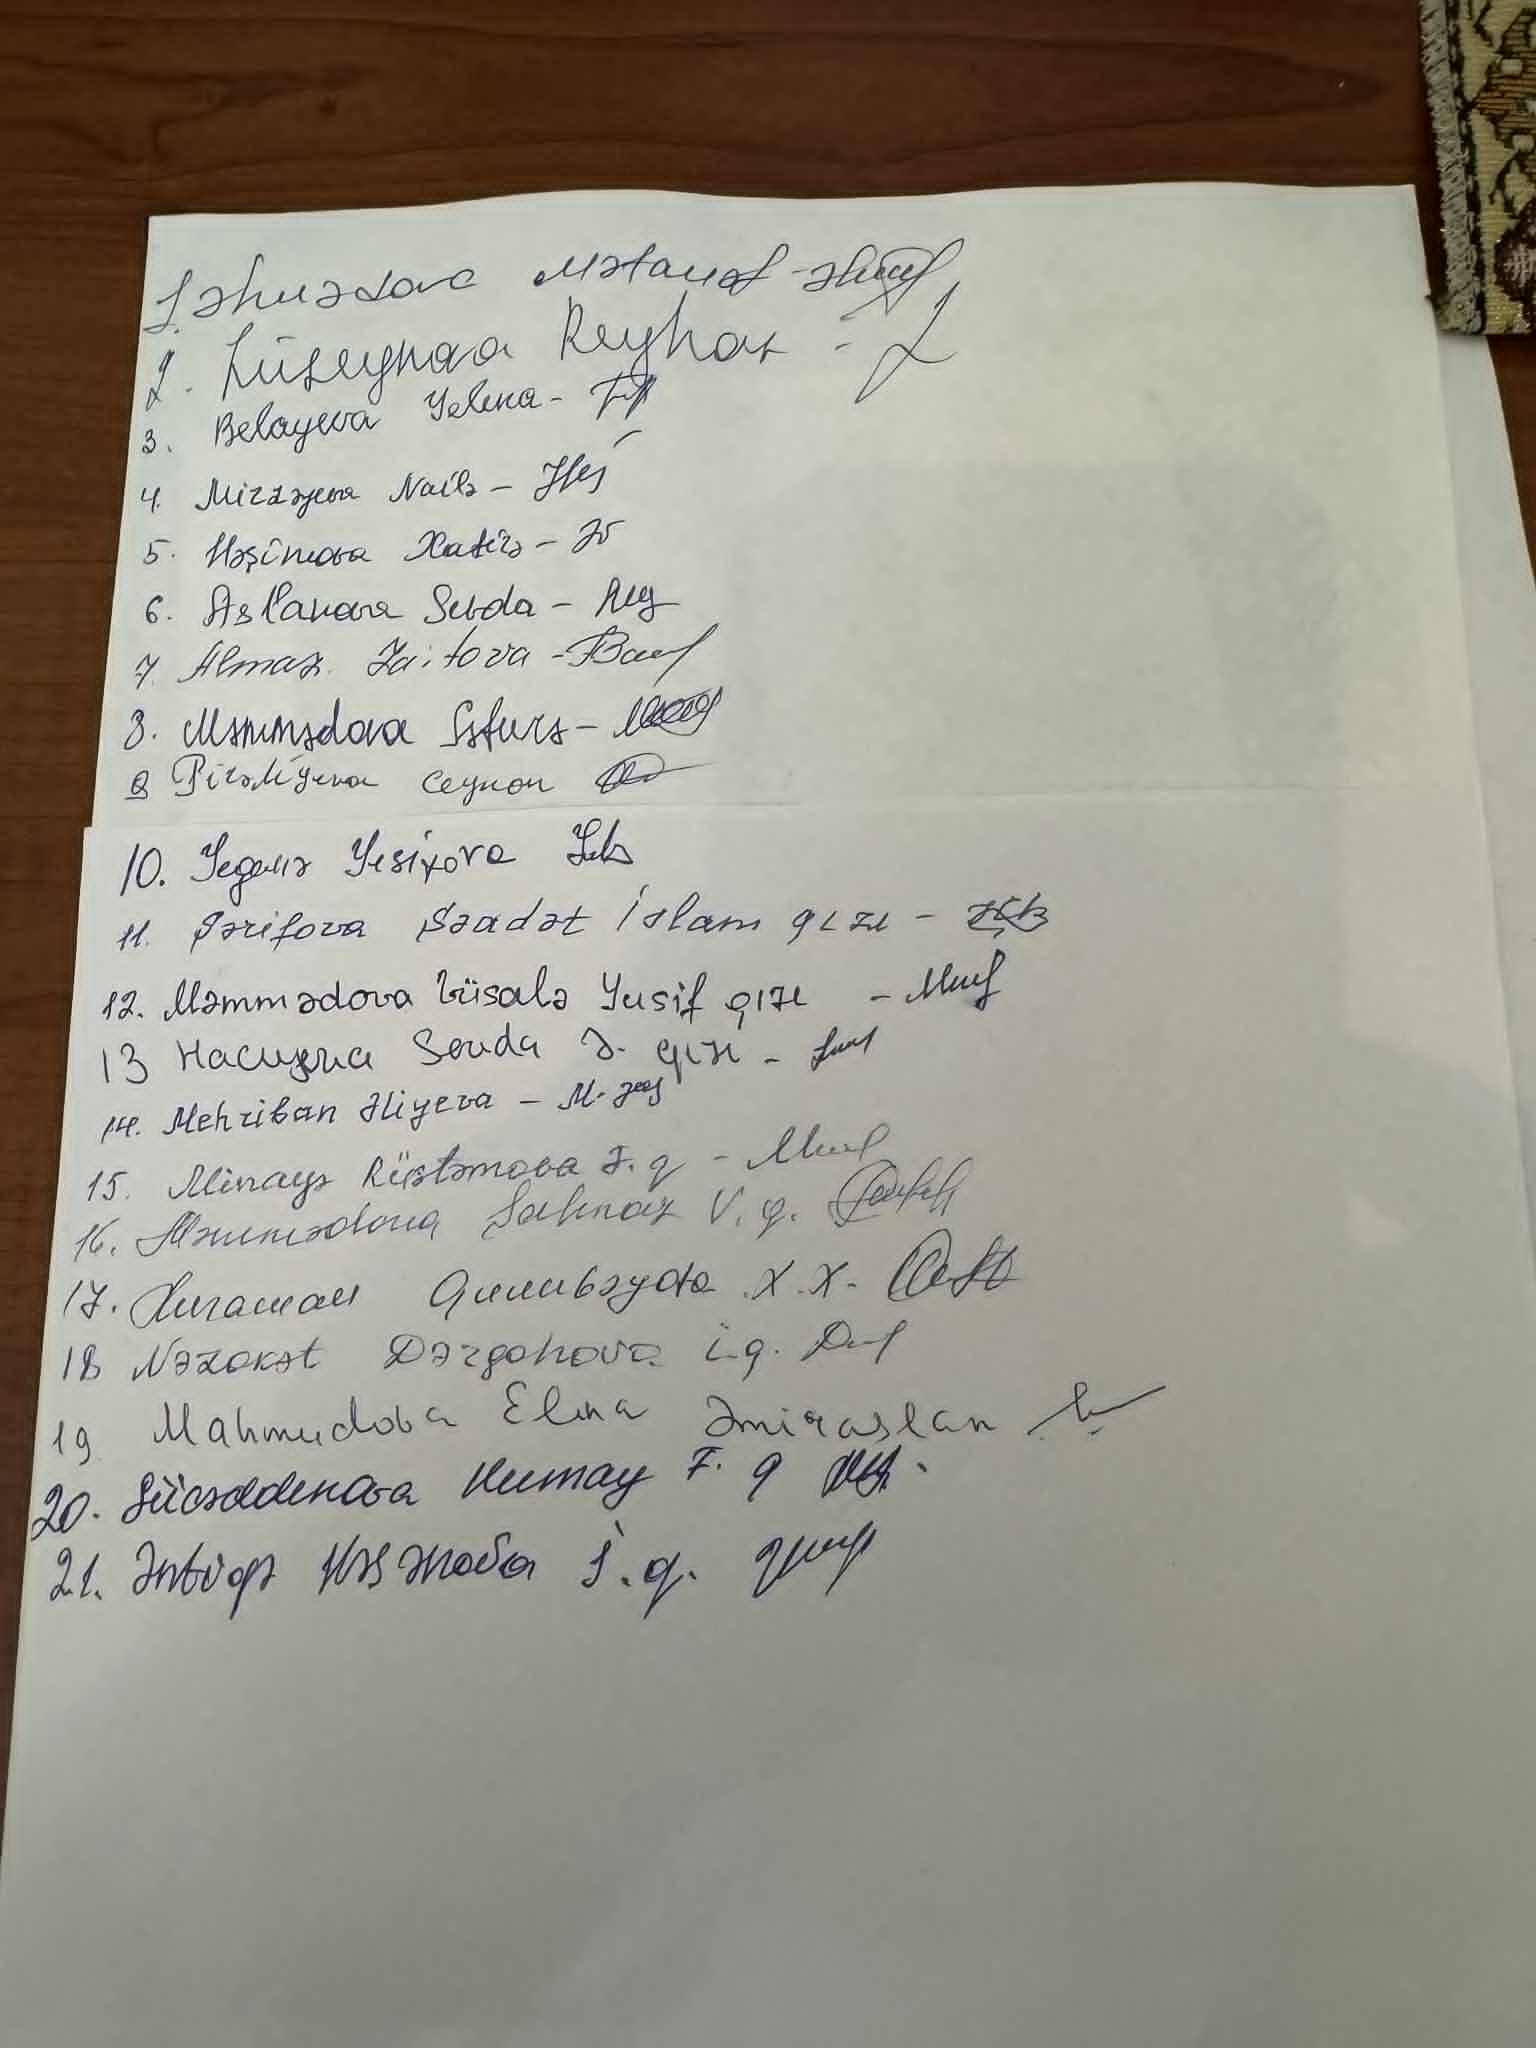 1. Əhmədova Mətanət -
2. Hüseynova Reyhan -
3. Belayeva Yelena -
4. Mirzəyeva Nailə -
5. Həşimova Xatirə -
6. Aslanova Sevda -
7. Almaz Zaitova -
8. Məmmədova Səfurə -
9 Pirəliyeva Ceyran
10. Yeganə Yesixova
11. Şərifova Səadət İslam qızı -
12. Məmmədova Vüsalə Yusif qızı -
13 Hacıyeva Sevda Ə. qızı -
14. Mehriban Əliyeva -
15. Minayə Rüstəmova F. q -
16. Məmmədova Şahnaz V. q.
17. Xuraman X. X.
18 Nəzakət Dərgahova İ. q.
19 Mahmudova Elena Əmiraslan
20. Sücəddinova Humay F. q
21. Əntiqə Həsənova İ. q.